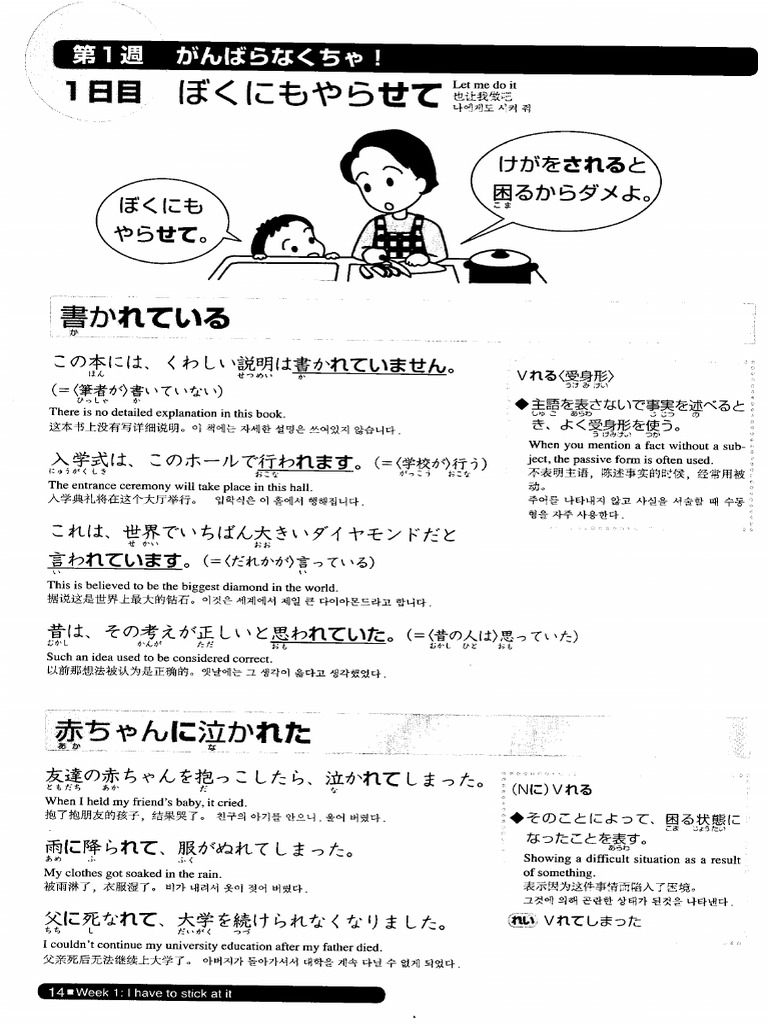 第1週 がんばらなくちゃ！
1日目 ぼくにもやらせて
Let me do it
也让我做吧
나에게도 시켜 줘
ぼくにも
やらせて。
けがをされると
困るからダメよ。
こま
書かれている
か
この本には、くわしい説明は書かれていません。
ほん せつめい か
(＝〈筆者が〉書いていない)
ひっしゃ か
There is no detailed explanation in this book.
这本书上没有写详细说明。이 책에는 자세한 설명은 쓰여있지 않습니다.
入学式は、このホールで行われます。(＝〈学校が〉行う)
にゅうがくしき おこな がっこう おこな
The entrance ceremony will take place in this hall.
入学典礼将在这个大厅举行。 입학식은 이 홀에서 행해집니다.
これは、世界でいちばん大きいダイヤモンドだと
せかい おお
言われています。(＝〈だれかが〉言っている)
い い
This is believed to be the biggest diamond in the world.
据说这是世界上最大的钻石。이것은 세계에서 제일 큰 다이아몬드라고 합니다.
昔は、その考えが正しいと思われていた。(＝〈昔の人は〉思っていた)
むかし かんが ただ おも むかし ひと おも
Such an idea used to be considered correct.
以前那想法被认为是正确的。옛날에는 그 생각이 옳다고 생각했었다.
Vれる〈受身形〉
うけみけい
◆主語を表さないで事実を述べると
しゅご あらわ じじつ の
き、よく受身形を使う。
うけみけい つか
When you mention a fact without a sub-
ject, the passive form is often used.
不表明主语，陈述事实的时候，经常用被
动。
주어를 나타내지 않고 사실을 서술할 때 수동
형을 자주 사용한다.
赤ちゃんに泣かれた
あか な
友達の赤ちゃんを抱っこしたら、泣かれてしまった。
ともだち あか だ な
When I held my friend's baby, it cried.
抱了抱朋友的孩子，结果哭了。 친구의 아기를 안으니, 울어 버렸다.
雨に降られて、服がぬれてしまった。
あめ ふ ふく
My clothes got soaked in the rain.
被雨淋了，衣服湿了。 비가 내려서 옷이 젖어 버렸다.
父に死なれて、大学を続けられなくなりました。
ちち し だいがく つづ
I couldn't continue my university education after my father died.
父亲死后无法继续上大学了。 아버지가 돌아가셔서 대학을 계속 다닐 수 없게 되었다.
(Nに)Vれる
◆そのことによって、困る状態に
こま じょうたい
なったことを表す。
あらわ
Showing a difficult situation as a result
of something.
表示因为这件事情而陷入了困境。
그것에 의해 곤란한 상태가 된것을 나타낸다.
れい Vれてしまった
14■Week 1: I have to stick at it